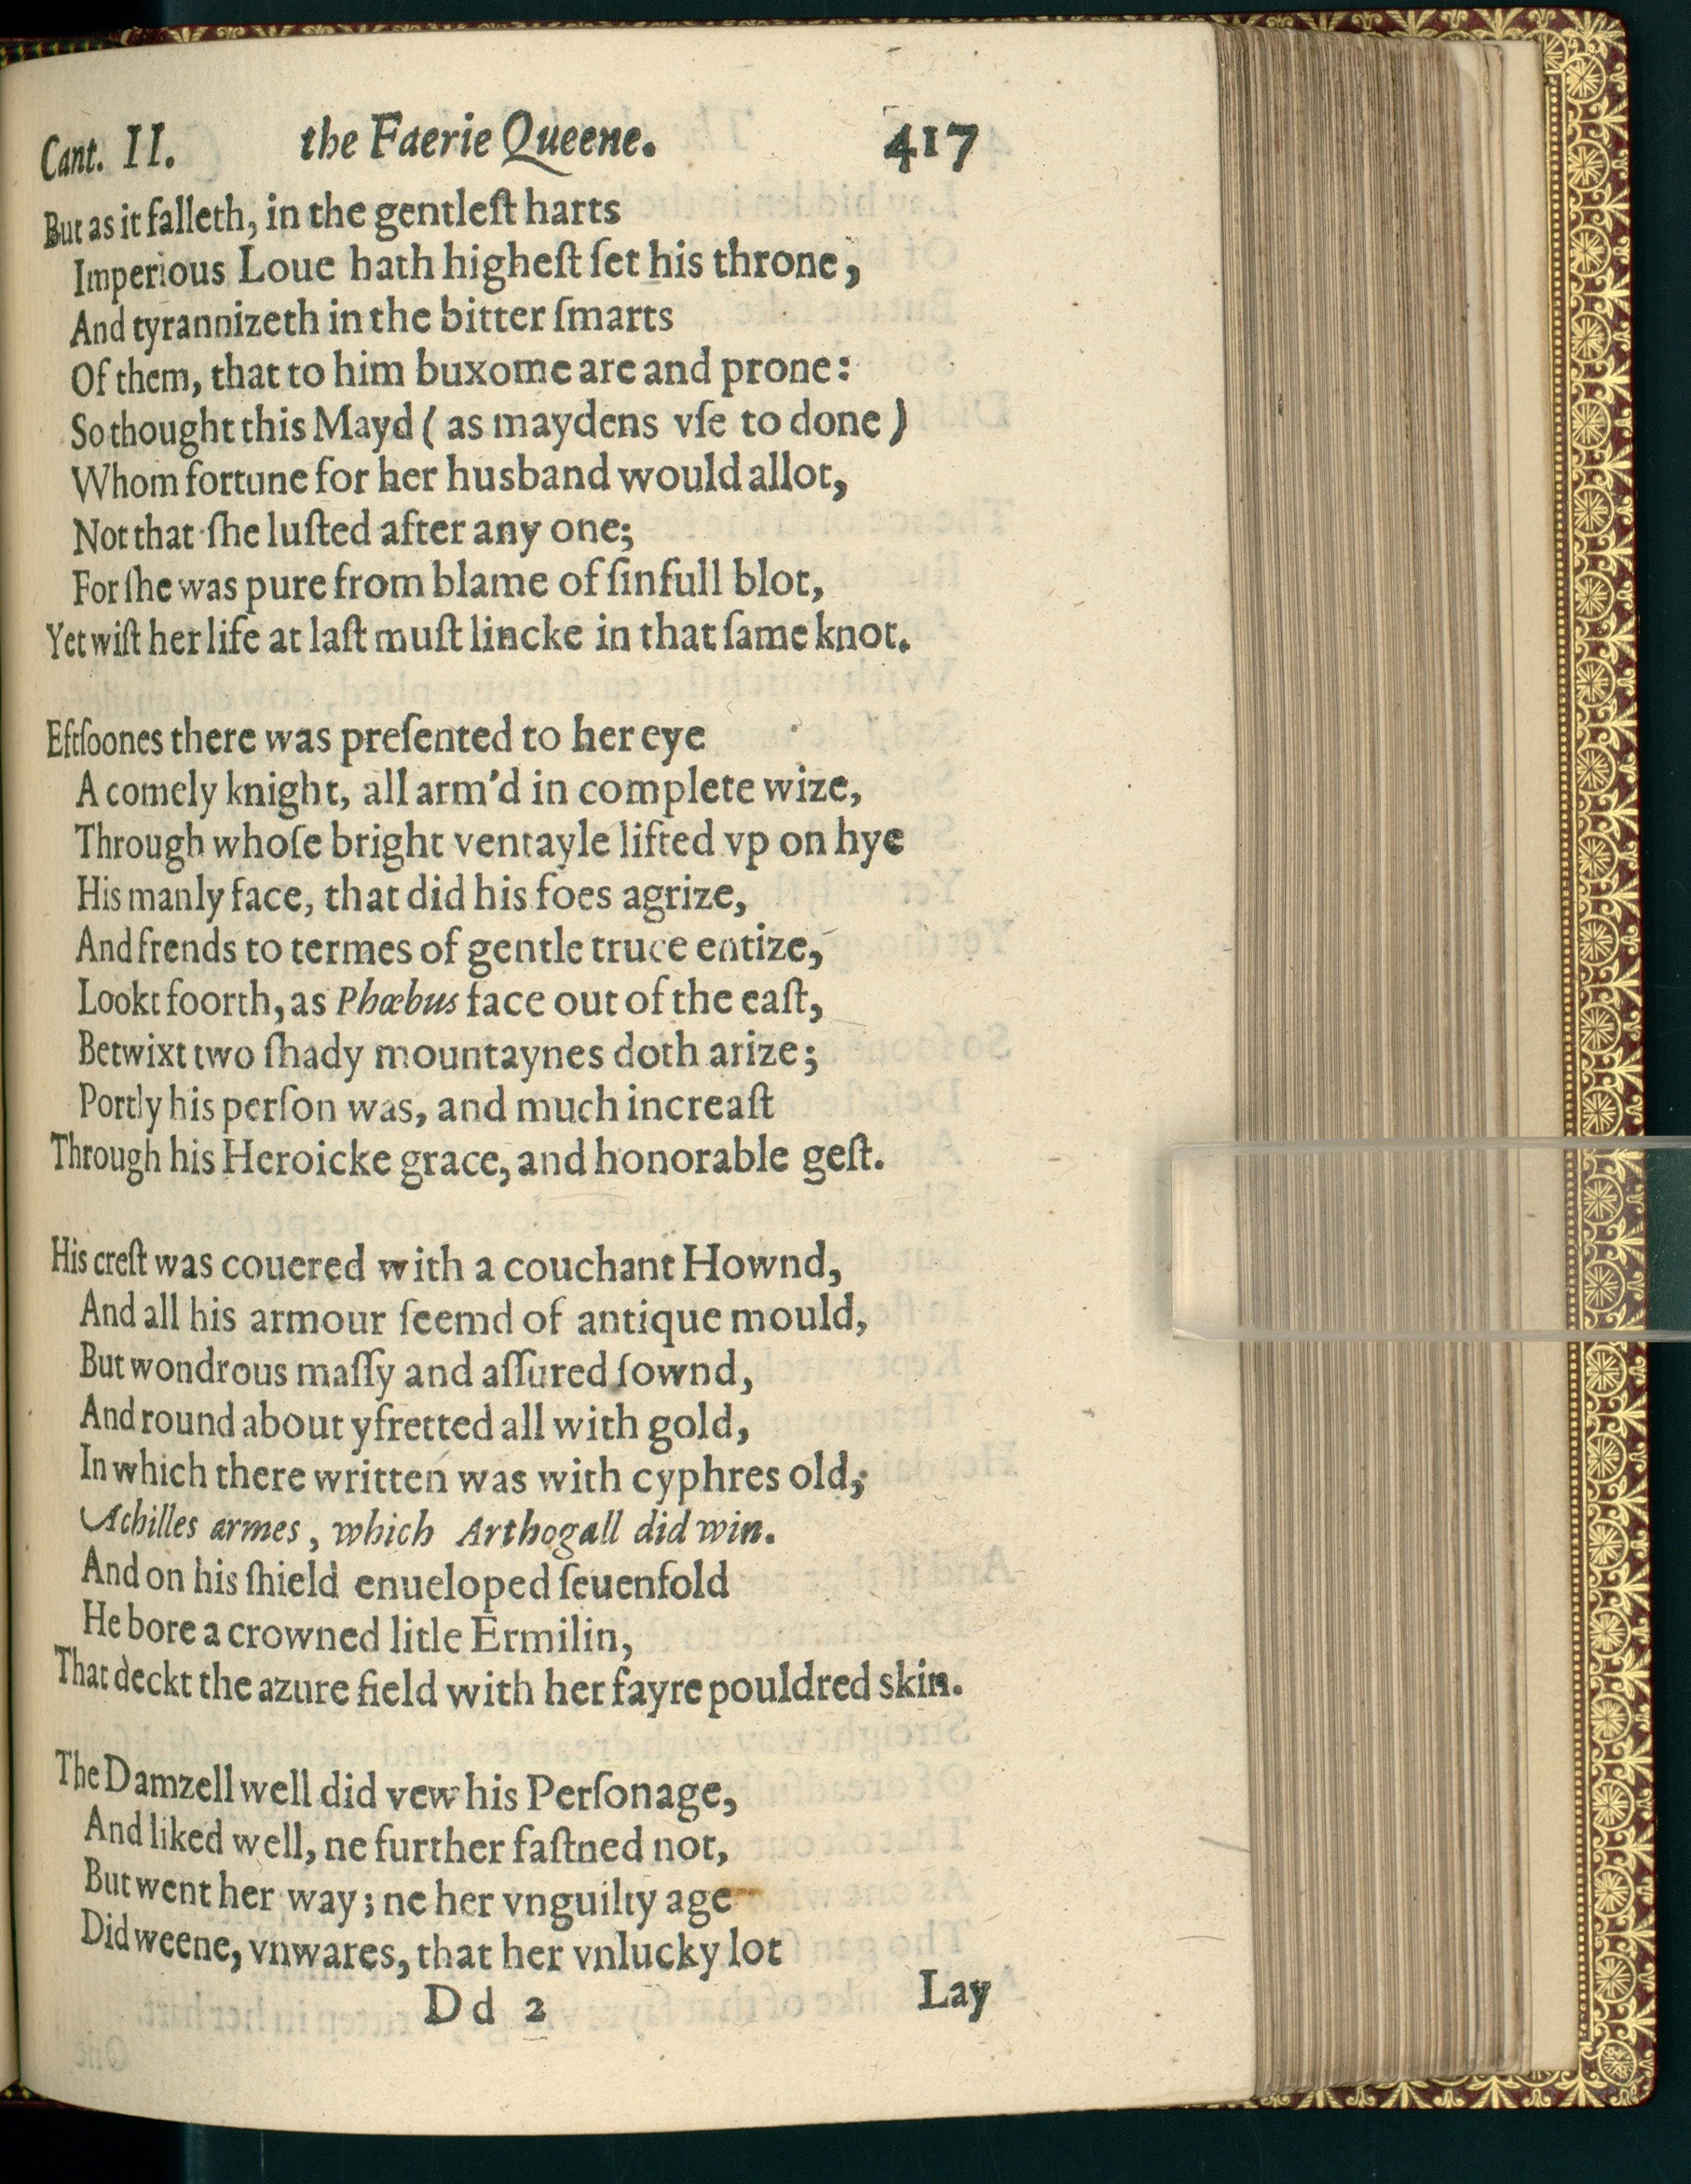 Cant. II. the Faerie Queene. 417
But as it falleth, in the gentleſt harts
Imperious Loue hath higheſt ſet his throne,
And tyrannizeth in the bitter ſmarts
Of them, that to him buxome are and prone:
So thought this Mayd (as maydens vſe to done)
Whom fortune for her husband would allot,
Not that ſhe luſted after any one;
For ſhe was pure from blame of ſinfull blot,
Yet wiſt her life at laſt muſt lincke in that ſame knot.
Eftſoones there was preſented to her eye
A comely knight, all arm'd in complete wize,
Through whoſe bright ventayle lifted vp on hye
His manly face, that did his foes agrize,
And frends to termes of gentle truce entize,
Lookt foorth, as Phœbus face out of the eaſt,
Betwixt two ſhady mountaynes doth arize;
Portly his perſon was, and much increaſt
Through his Heroicke grace, and honorable geſt.
His creſt was couered with a couchant Hownd,
And all his armour ſeemd of antique mould,
But wondrous maſſy and aſſured ſownd,
And round about yfretted all with gold,
In which there written was with cyphres old,
Achilles armes, which Arthogall did win.
And on his ſhield enueloped ſeuenfold
He bore a crowned litle Ermilin,
That deckt the azure field with her fayre pouldred skin.
The Damzell well did vew his Perſonage,
And liked well, ne further faſtned not,
But went her way; ne her vnguilty age
Did weene, vnwares, that her vnlucky lot
Dd 2 Lay